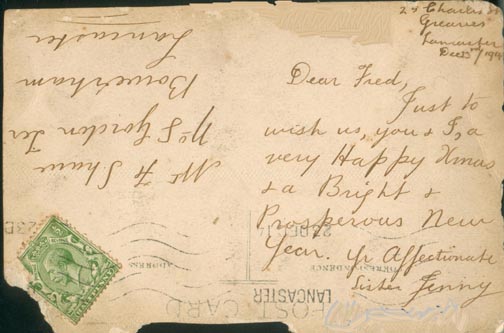 24 Charles St
Greaves
Lancaster
Dec 23/1914
Dear Fred,
Just to
wish us, you & I, a
very Happy Xmas
& a Bright &
Prosperous New
Year. Yr Affectionate
Sister Jenny
Mr F Shaw
No 5 Gordon Ter
Bowerham
Lancaster
POST CARD
CORRESPONDENCE
ADDRESS
LANCASTER
23 DEC 14
23 D